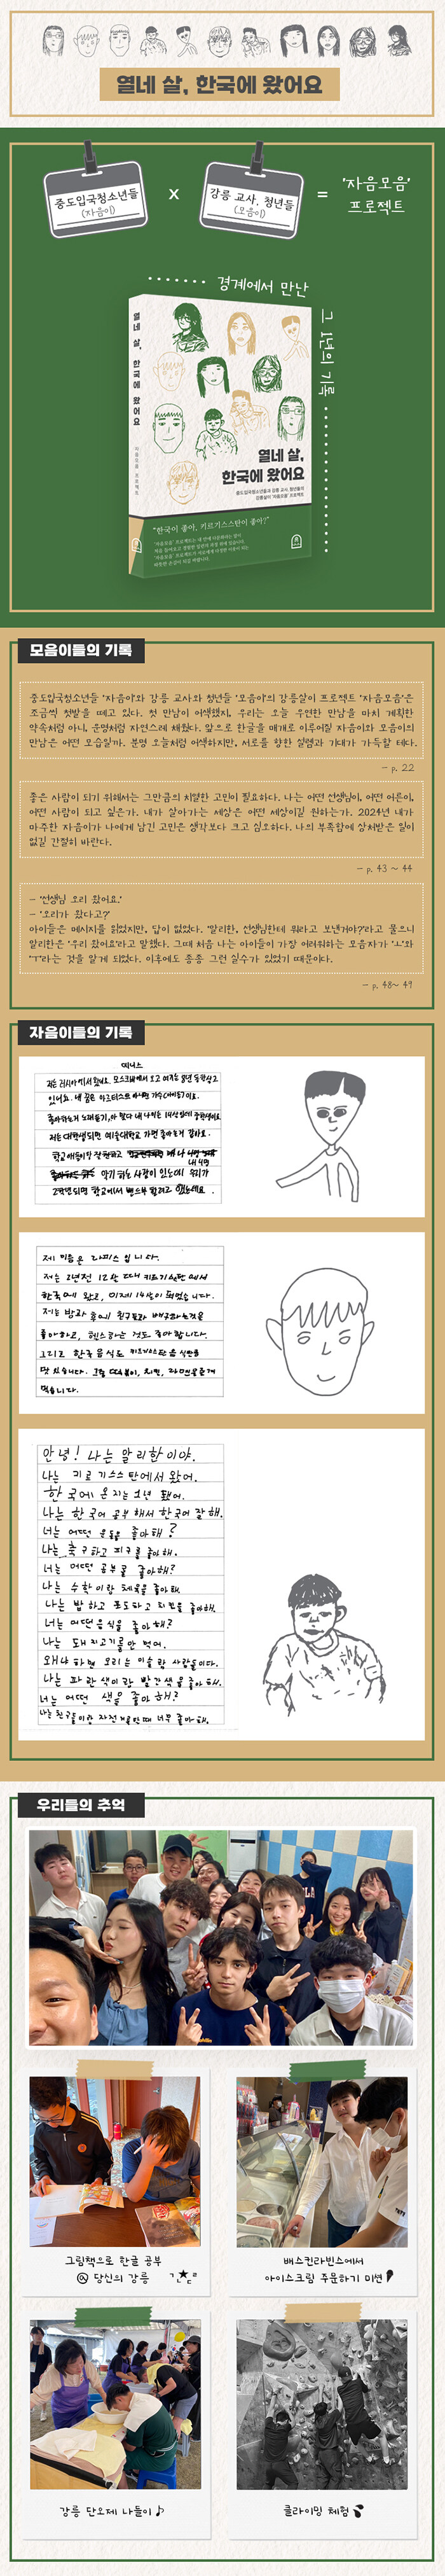 열네 살, 한국에 왔어요
중도입국청소년들
(자음이)
x
강릉 교사, 청년들
(모음이)
=
'자음모음'
프로젝트
경계에서 만난
그 1년의 기록
열네 살, 한국에 왔어요
자음모음 프로젝트
열네 살,
한국에 왔어요
중도입국청소년들과 강릉 교사, 청년들의
강릉살이 '자음모음' 프로젝트
"한국이 좋아, 키르기스스탄이 좋아?"
모음이들의 기록
중도입국청소년들 '자음이'와 강릉 교사와 청년들 '모음이'의 강릉살이 프로젝트 '자음모음'은
조금씩 첫발을 떼고 있다. 첫 만남이 어색했지, 우리는 오늘 우연한 만남을 마치 계획한
약속처럼 아니, 운명처럼 자연스레 채웠다. 앞으로 한글을 매개로 이루어질 자음이와 모음이의
만남은 어떤 모습일까. 분명 오늘처럼 어색하지만, 서로를 향한 설렘과 기대가 가득할 테다.
- p. 22
좋은 사람이 되기 위해서는 그만큼의 치열한 고민이 필요하다. 나는 어떤 선생님이, 어떤 어른이,
어떤 사람이 되고 싶은가. 내가 살아가는 세상은 어떤 세상이길 원하는가. 2024년 내가
마주한 자음이가 나에게 남긴 고민은 생각보다 크고 심오하다. 나의 부족함에 상처받은 일이
없길 간절히 바란다.
- p. 43 ~ 44
- '선생님 오리 왔어요.'
- '오리가 왔다고?'
아이들은 메시지를 읽었지만, 답이 없었다. '알리한, 선생님한테 뭐라고 보낸거야?'라고 물으니
알리한은 '우리 왔어요'라고 말했다. 그때 처음 나는 아이들이 가장 어려워하는 모음자가 'ㅗ'와
'ㅜ'라는 것을 알게 되었다. 이후에도 종종 그런 실수가 있었기 때문이다.
- p. 48~ 49
자음이들의 기록
데니스
제 이름은 라피스 입니다.
저는 2년전 12살 때 키르기스탄에서
한국에 왔고, 이제 14살이 되었습니다.
저는 방과 후에 친구들과 배구하는것을
좋아하고, 헬스하는 것도 좋아합니다.
그리고 한국음식도 키르기스탄음식만큼
맛있습니다. 그럼 떡볶이, 치킨, 라면을 즐겨
먹습니다.
안녕! 나는 알리한이야.
나는 키르기스스탄에서 왔어.
한국에 온 지는 1년 됐어.
나는 한국어 공부 해서 한국어 잘해.
너는 어떤 운동을 좋아해?
나는 축구하고 피구를 좋아해.
너는 어떤 공부를 좋아해?
나는 수학이랑 체육을 좋아해.
나는 밥하고 포도하고 치킨을 좋아해.
너는 어떤음식을 좋아해?
나는 돼지고기를안 먹어.
왜냐하면 우리는 이슬람 사람들이다.
나는 파란색이랑 빨간색을 좋아해.
너는 어떤 색을 좋아해?
나는 친구들이랑 자전거를탄때 너무 좋아해.
우리들의 추억
그림책으로 한글 공부
@ 당신의 강릉
ㄱㄴ★ㄷㄹ
배스킨라빈스에서
아이스크림 주문하기 미션
강릉 단오제 나들이♪
클라이밍 체험